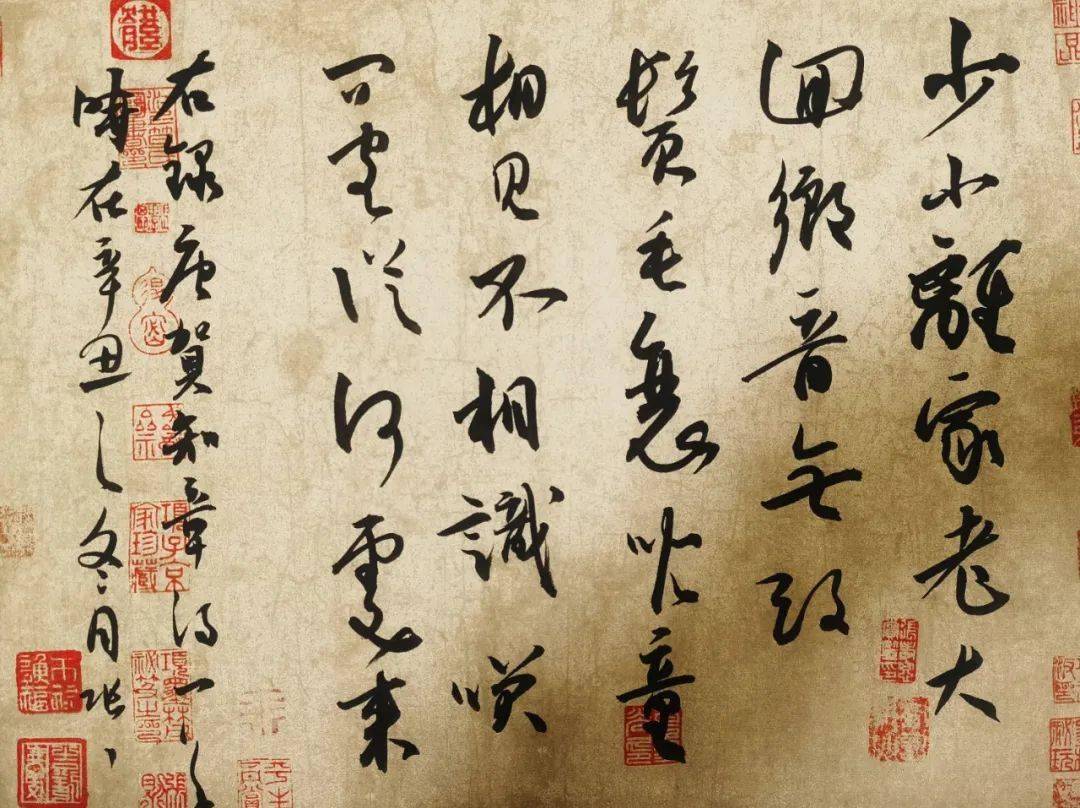 少小離家老大
迴鄉音無改
鬢毛衰兒童
相見不相識咲
問客從何處來
右錄唐賀知章詩一首
時在辛丑之冬月